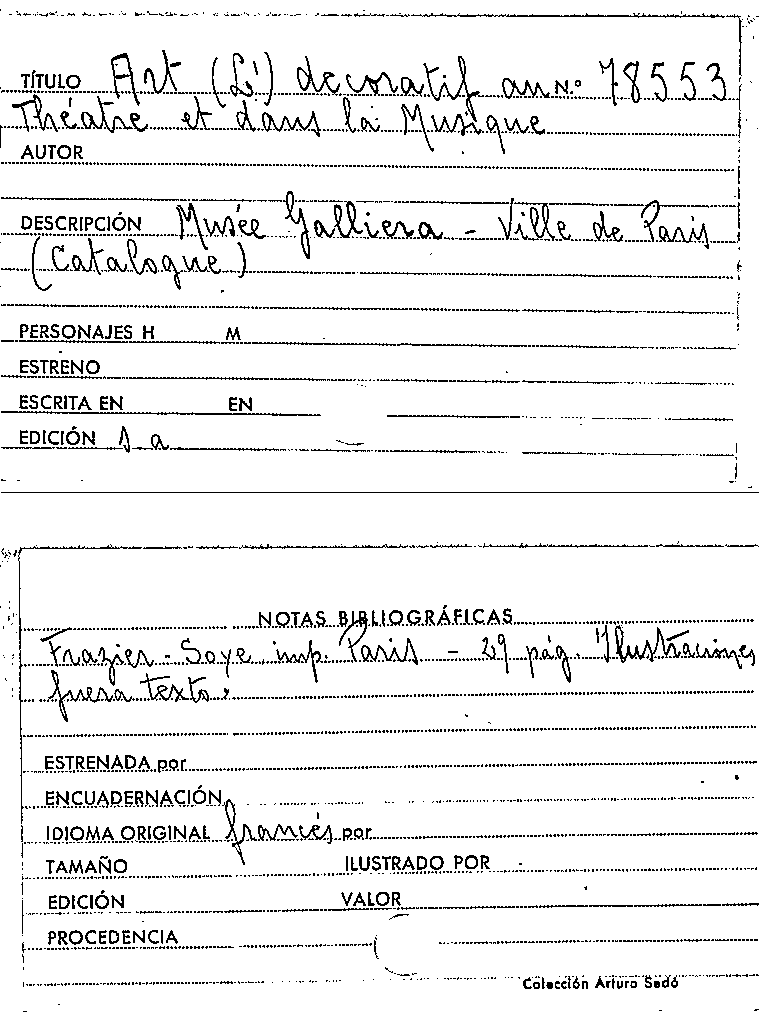 TÍTULO Art (L') decoratif au N.º 78553
Théatre et dans la Musique
AUTOR
DESCRIPCIÓN Musée Galliera - Ville de Paris
(Catalogue)
PERSONAJES H M
ESTRENO
ESCRITA EN EN
EDICIÓN s a
NOTAS BIBLIOGRÁFICAS
Frazier - Soye imp. Paris - 29 pág. Ilustraciones
fuera texto.
ESTRENADA por
ENCUADERNACIÓN
IDIOMA ORIGINAL francés por
TAMAÑO ILUSTRADO POR
EDICIÓN VALOR
PROCEDENCIA
Colección Arturo Sedó